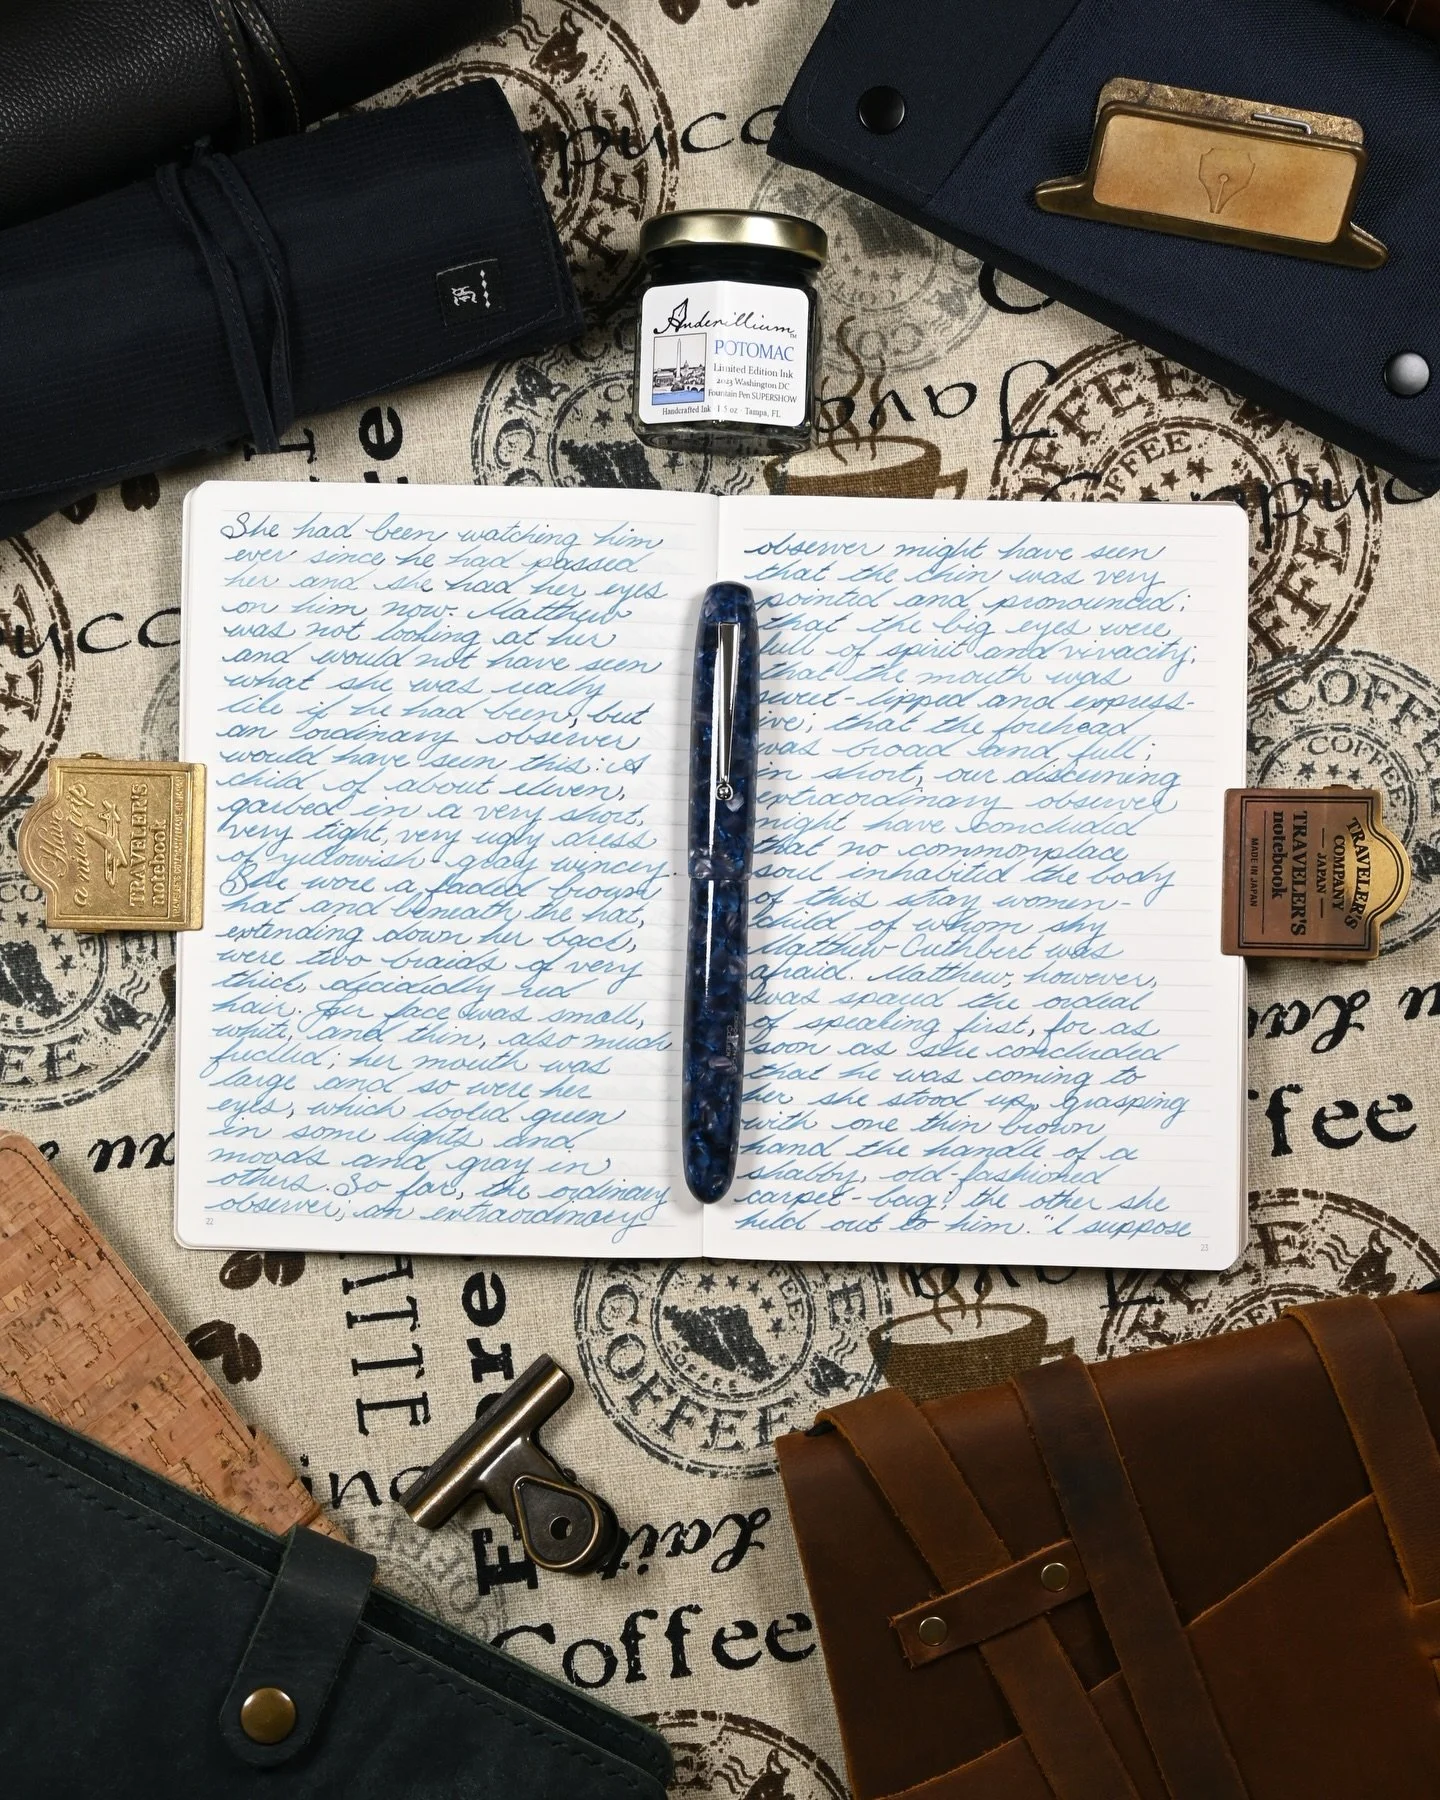 Anderillium
POTOMAC
Limited Edition Ink
2023 Washington DC
Fountain Pen SUPERSHOW
Handcrafted Ink 1.5 oz - Tampa, FL
She had been watching him
ever since he had passed
her and she had her eyes
on him now. Matthew
was not looking at her
and would not have seen
what she was really
like if he had been, but
an ordinary observer
would have seen this: A
child of about eleven,
garbed in a very short,
very tight, very ugly dress
of yellowish-gray wincey.
She wore a faded brown
hat and beneath the hat,
extending down her back,
were two braids of very
thick, decidedly red
hair. Her face was small,
white, and thin, also much
freckled; her mouth was
large and so were her
eyes, which looked green
in some lights and
moods and gray in
others. So far, the ordinary
observer; an extraordinary
22
observer might have seen
that the chin was very
pointed and pronounced;
that the big eyes were
full of spirit and vivacity;
that the mouth was
sweet-lipped and express-
ive; that the forehead
was broad and full;
in short, our discerning
extraordinary observer
might have concluded
that no commonplace
soul inhabited the body
of this stray women-
child of whom shy
Matthew Cuthbert was
afraid. Matthew, however,
was spared the ordeal
of speaking first, for as
soon as she concluded
that he was coming to
her she stood up, grasping
with one thin brown
hand the handle of a
shabby, old-fashioned
carpet-bag; the other she
held out to him. "I suppose
23
Have
a nice trip
TRAVELER'S
notebook
TRAVELER'S
COMPANY
JAPAN
TRAVELER'S
notebook
MADE IN JAPAN
Java
COFFEE
COFFEE
COFFEE
COFFEE
COFFEE
Coffee